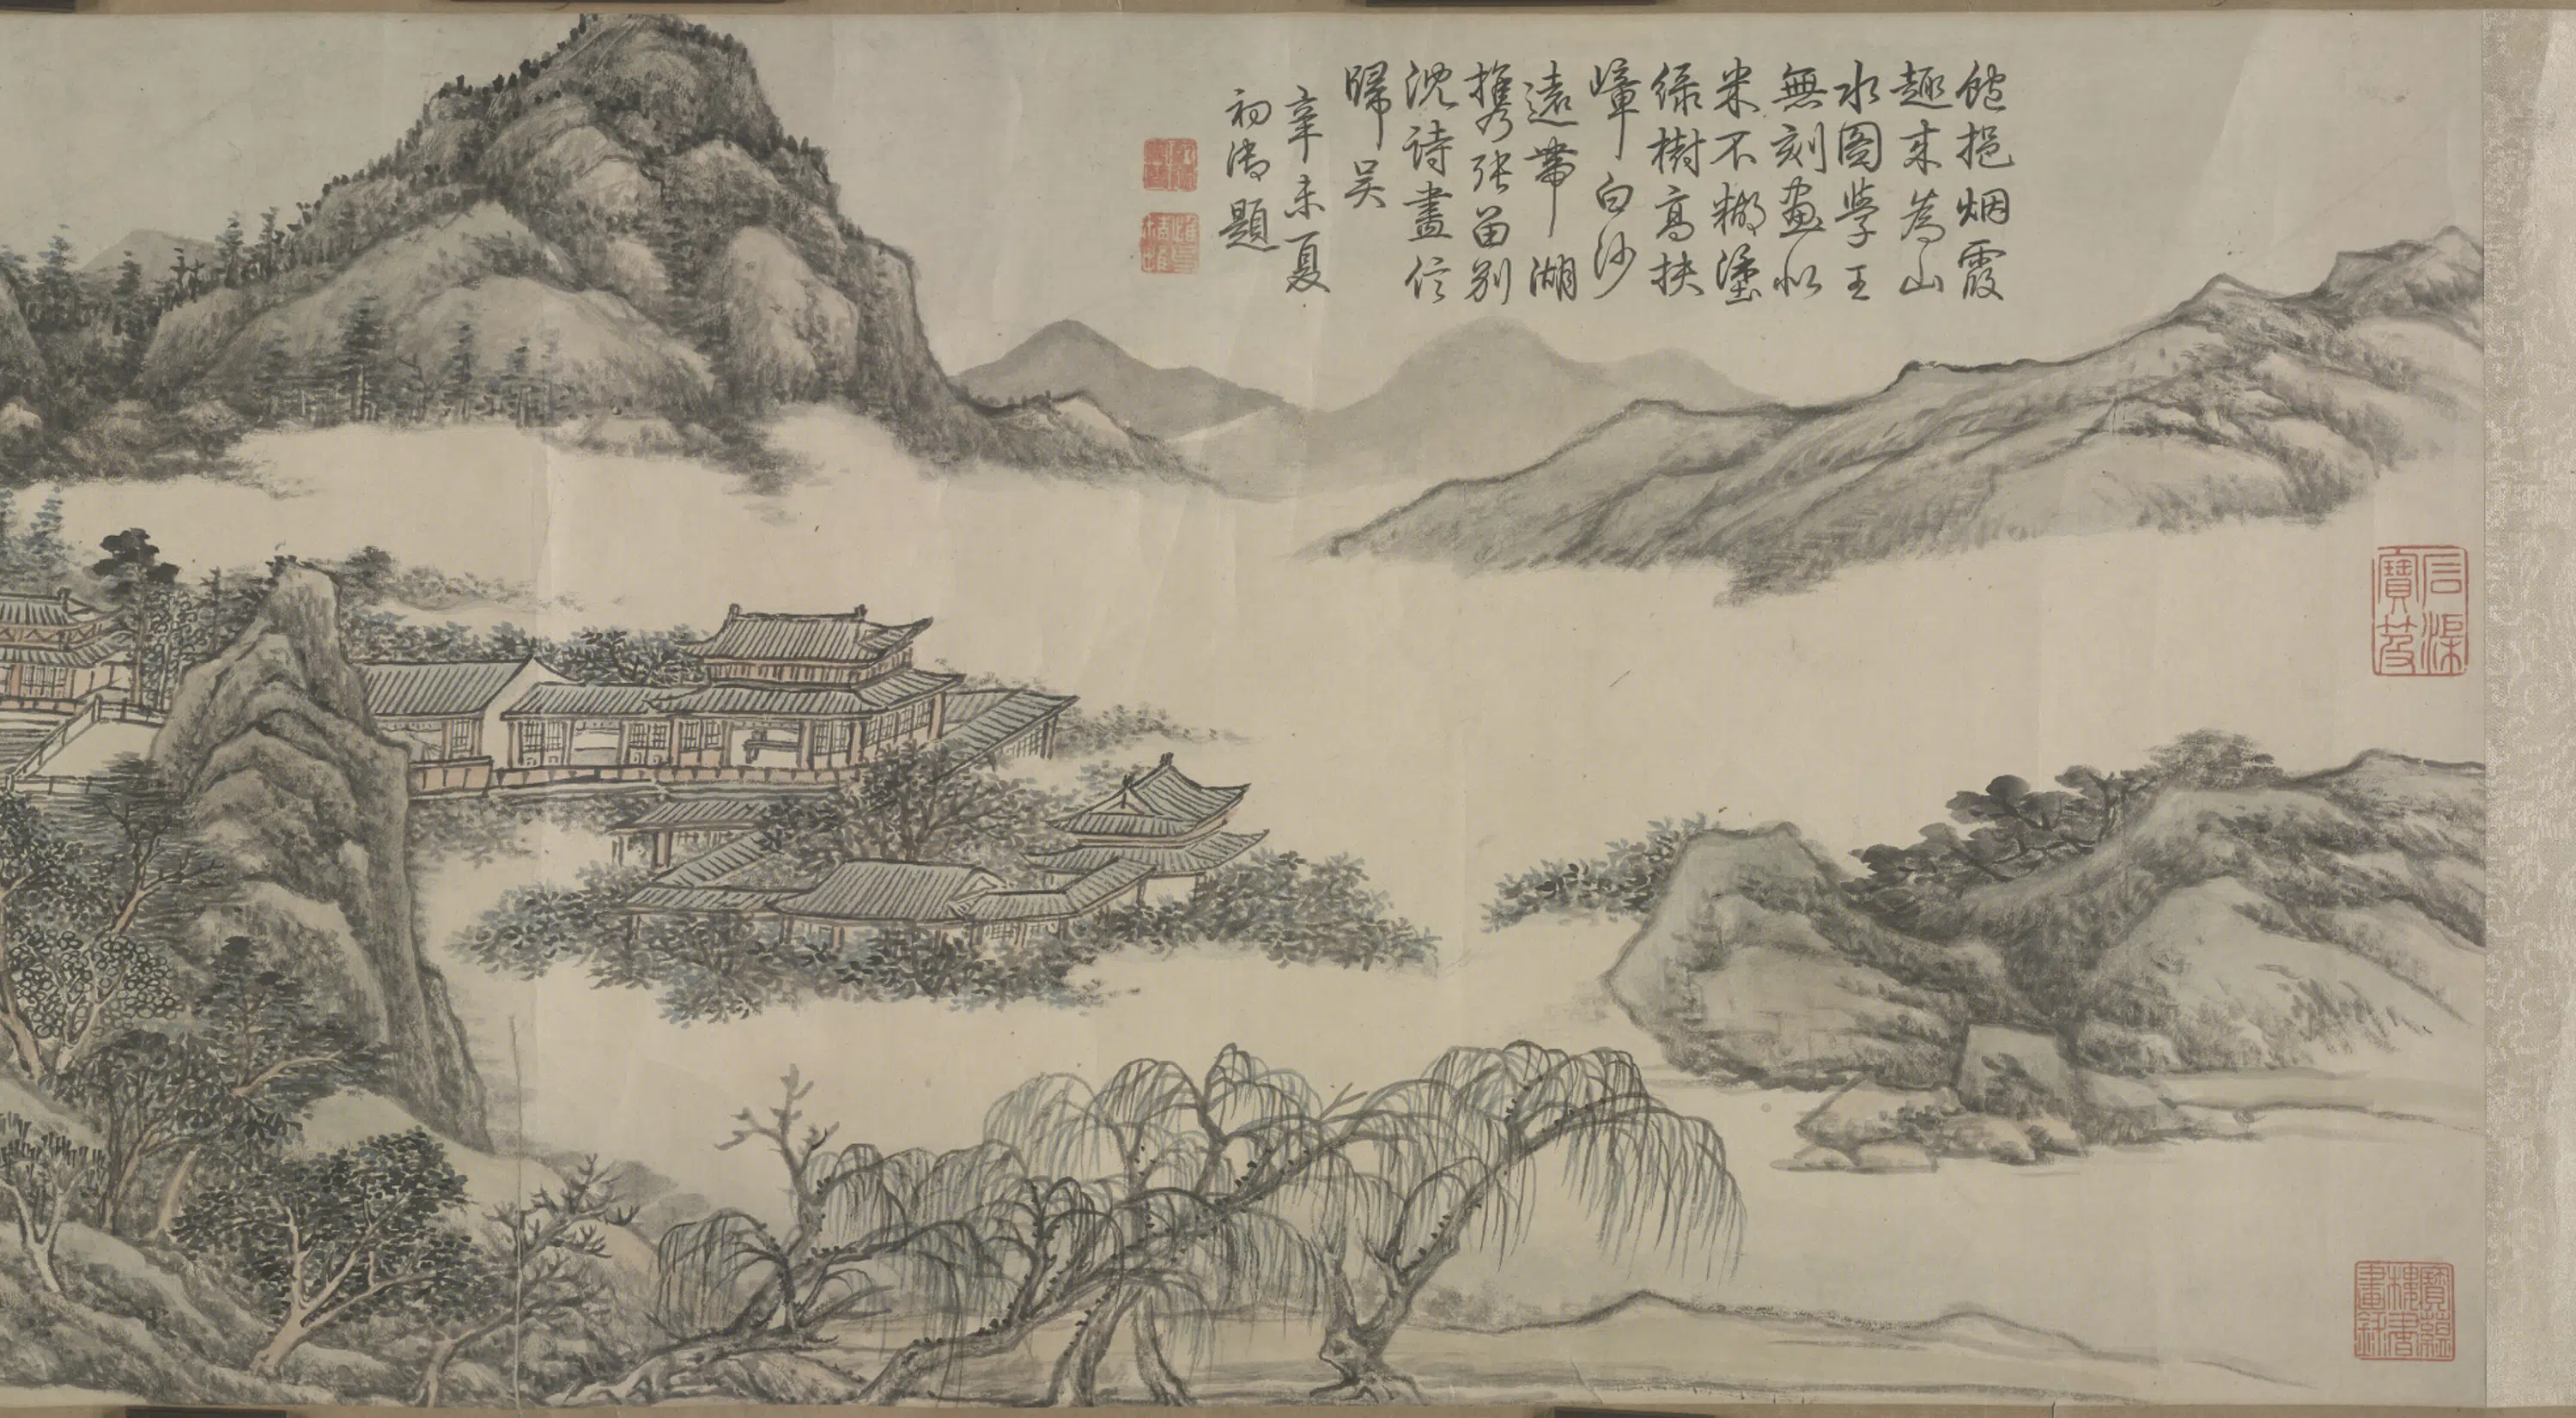 飽挹烟霞
趣来為山
水圖學王
無刻畫似
米不糊塗
緑樹高扶
嶂白沙
遠帶湖
携張留別
沈詩畫信
歸吴
辛未夏
初御題
石渠
寶笈
寶蘊
樓書
畫錄